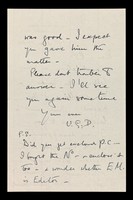 was good – I expect
you gave him the
matter –
Please don't trouble to
answer – I'll see
you again some time
Yours ever
V.G.D.
P.S.
Did you get enclosed P.C. –
I forget the Nº – enclose it
too – & wonder whether E.M.
is Editor –